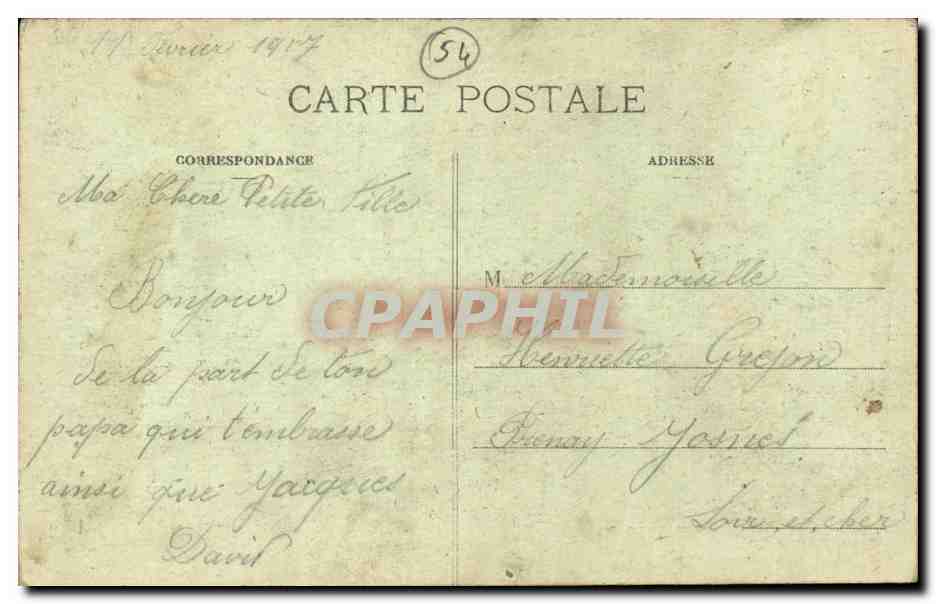 11 Février 1917
54
CARTE POSTALE
CORRESPONDANCE
Ma Chere Petite Fille
Bonjour
de la part de ton
papa qui t'embrasse
ainsi que Jacques
David
ADRESSE
M Mademoiselle
Henriette
Josnes
Loir et cher
CPAPHIL